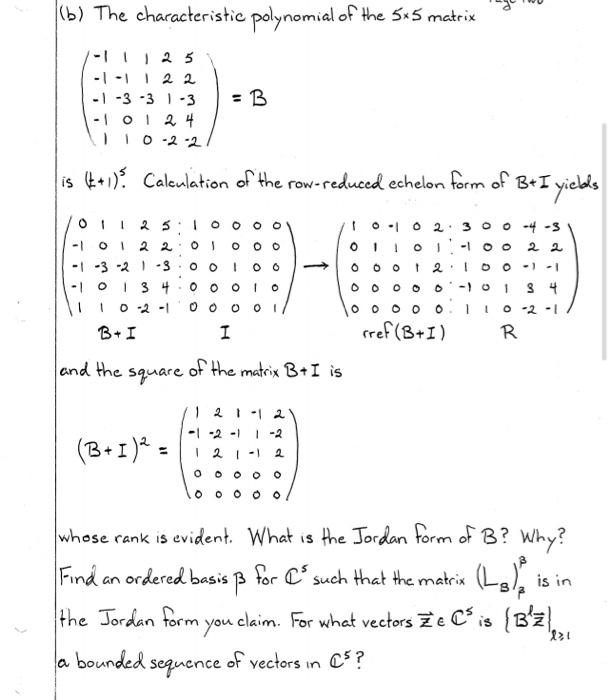 (b) The characteristic polynomial of the 5×5 matrix
-1 1 1 2 5
-1 -1 1 2 2
-1 -3 -3 1 -3 = B
-1 0 1 2 4
1 1 0 -2 -2
is (t+1)⁵. Calculation of the row-reduced echelon form of B+I yields
0 1 1 2 5 : 1 0 0 0 0 1 0 -1 0 2 : 3 0 0 -4 -3
-1 0 1 2 2 : 0 1 0 0 0 0 1 1 0 1 : -1 0 0 2 2
-1 -3 -2 1 -3 : 0 0 1 0 0 → 0 0 0 1 2 : 1 0 0 -1 -1
-1 0 1 3 4 : 0 0 0 1 0 0 0 0 0 0 : -1 0 1 3 4
1 1 0 -2 -1 0 0 0 0 1 0 0 0 0 0 : 1 1 0 -2 -1
B+I I rref(B+I) R
and the square of the matrix B+I is
1 2 1 -1 2
-1 -2 -1 1 -2
(B+I)² = 1 2 1 -1 2
0 0 0 0 0
0 0 0 0 0
whose rank is evident. What is the Jordan form of B? Why?
Find an ordered basis β for ℂ⁵ such that the matrix (L_B)^β_β is in
the Jordan form you claim. For what vectors z⃗ ∈ ℂ⁵ is {B^l z⃗}_{l≥1}
a bounded sequence of vectors in ℂ⁵?